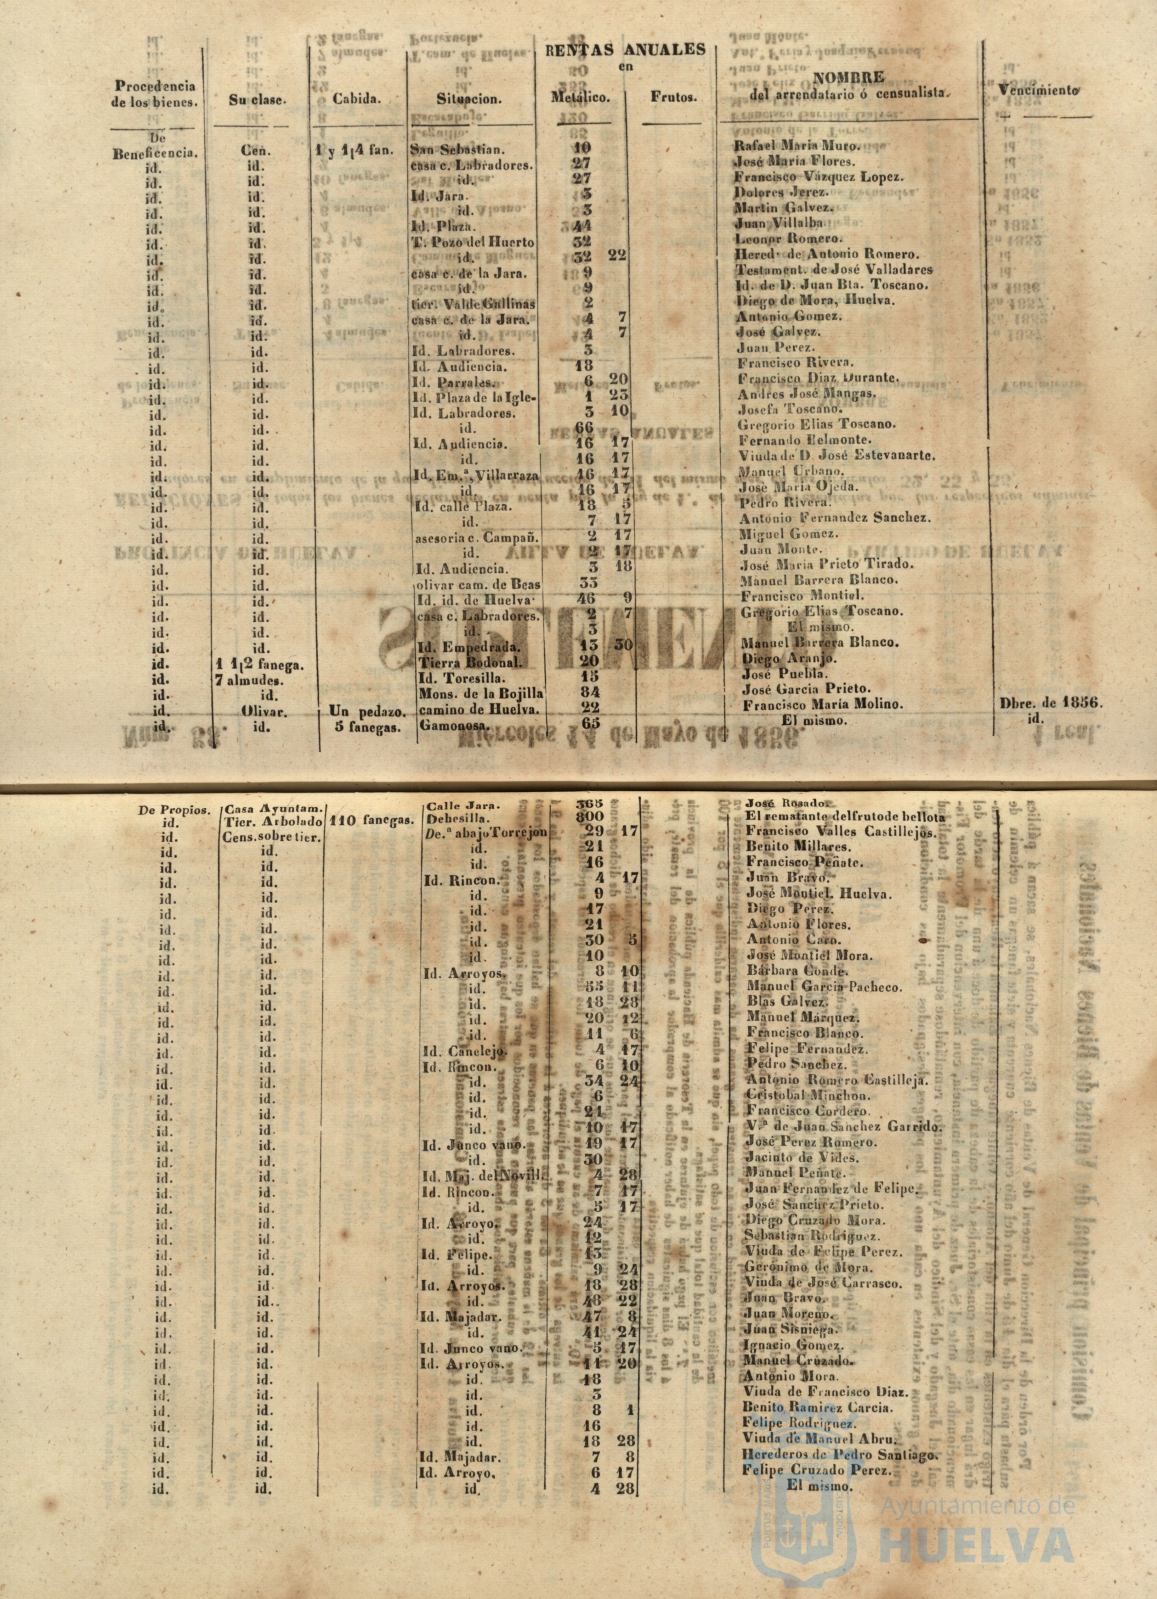 RENTAS ANUALES
en
Procedencia de los bienes. Su clase. Cabida. Situacion. Metálico. Frutos. NOMBRE del arrendatario ó censualista. Vencimiento
De
Beneficencia. Cen. 1 y 1|4 fan. San Sebastian. 10 Rafael Maria Muro.
id. id. casa c. Labradores. 27 José Maria Flores.
id. id. id. 27 Francisco Vazquez Lopez.
id. id. Id. Jara. 3 Dolores Jerez.
id. id. id. 3 Martin Galvez.
id. id. Id. Plaza. 44 Juan Villalba
id. id. T. Pozo del Huerto 32 Leonor Romero.
id. id. id. 32 22 Hered. de Antonio Romero.
id. id. casa c. de la Jara. 9 Testament. de José Valladares
id. id. id. 9 Id. de D. Juan Bta. Toscano.
id. id. tier. Valde Gallinas 2 Diego de Mora, Huelva.
id. id. casa c. de la Jara. 4 7 Antonio Gomez.
id. id. id. 4 7 José Galvez.
id. id. Id. Labradores. 3 Juan Perez.
id. id. Id. Audiencia. 18 Francisco Rivera.
id. id. Id. Parrales. 6 20 Francisco Diaz Durante.
id. id. Id. Plaza de la Igle- 1 23 Andres José Mangas.
id. id. Id. Labradores. 3 10 Josefa Toscano.
id. id. id. 66 Gregorio Elias Toscano.
id. id. Id. Audiencia. 16 17 Fernando Belmonte.
id. id. id. 16 17 Viuda de D. José Estevanarte.
id. id. Id. Em.ª, Villarraza 16 17 Manuel Urbano.
id. id. id. 16 17 José Maria Ojeda.
id. id. Id. calle Plaza. 18 5 Pedro Rivera.
id. id. id. 7 17 Antonio Fernandez Sanchez.
id. id. asesoria c. Campañ. 2 17 Miguel Gomez.
id. id. id. 2 17 Juan Monte.
id. id. Id. Audiencia. 3 18 José Maria Prieto Tirado.
id. id. olivar cam. de Beas 33 Manuel Barrera Blanco.
id. id. Id. id. de Huelva 46 9 Francisco Montiel.
id. id. casa c. Labradores. 2 7 Gregorio Elias Toscano.
id. id. id. 3 El mismo.
id. id. Id. Empedrada. 13 30 Manuel Barrera Blanco.
id. 1 1|2 fanega. Tierra Bodonal. 20 Diego Aranjo.
id. 7 almudes. Id. Toresilla. 15 José Puebla.
id. id. Mons. de la Bojilla 84 José Garcia Prieto.
id. Olivar. Un pedazo. camino de Huelva. 22 Francisco Maria Molino. Dbre. de 1856.
id. id. 5 fanegas. Gamonosa. 65 El mismo. id.
De Propios. Casa Ayuntam. Calle Jara. 365 José Rosado.
id. Tier. Arbolado 110 fanegas. Dehesilla. 800 El rematante del fruto de bellota
id. Cens. sobre tier. De.ª abajo Torrejon 29 17 Francisco Valles Castillejos.
id. id. id. 21 Benito Millares.
id. id. id. 16 Francisco Peñate.
id. id. Id. Rincon. 4 17 Juan Bravo.
id. id. id. 9 José Montiel Huelva.
id. id. id. 17 Diego Perez.
id. id. id. 21 Antonio Flores.
id. id. id. 30 5 Antonio Caro.
id. id. id. 10 José Montiel Mora.
id. id. Id. Arroyos. 8 10 Bárbara Conde.
id. id. id. 55 11 Manuel Garcia Pacheco.
id. id. id. 18 28 Blas Galvez.
id. id. id. 20 12 Manuel Marquez.
id. id. id. 11 6 Francisco Blanco.
id. id. Id. Canelejo. 4 17 Felipe Fernandez.
id. id. Id. Rincon. 6 10 Pedro Sanchez.
id. id. id. 34 24 Antonio Romero Castilleja.
id. id. id. 6 Cristobal Minchon.
id. id. id. 21 Francisco Cordero.
id. id. id. 10 17 V.ª de Juan Sanchez Garrido.
id. id. Id. Junco vano. 19 17 José Perez Romero.
id. id. id. 30 Jacinto de Vides.
id. id. Id. Maj. del Novill. 4 28 Manuel Peñate.
id. id. Id. Rincon. 7 17 Juan Fernandez de Felipe.
id. id. id. 5 17 José Sanchez Prieto.
id. id. Id. Arroyo. 24 Diego Cruzado Mora.
id. id. id. 12 Sebastian Rodriguez.
id. id. Id. Felipe. 13 Viuda de Felipe Perez.
id. id. id. 9 24 Gerónimo de Mora.
id. id. Id. Arroyos. 18 28 Viuda de José Carrasco.
id. id. id. 48 22 Juan Bravo.
id. id. Id. Majadar. 47 8 Juan Moreno.
id. id. id. 41 24 Juan Sisniega.
id. id. Id. Junco vano. 5 17 Ignacio Gomez.
id. id. Id. Arroyos. 11 20 Manuel Cruzado.
id. id. id. 18 Antonio Mora.
id. id. id. 3 Viuda de Francisco Diaz.
id. id. id. 8 1 Benito Ramirez Garcia.
id. id. id. 16 Felipe Rodriguez.
id. id. id. 18 28 Viuda de Manuel Abru.
id. id. Id. Majadar. 7 8 Herederos de Pedro Santiago.
id. id. Id. Arroyo. 6 17 Felipe Cruzado Perez.
id. id. id. 4 28 El mismo.
Ayuntamiento de
HUELVA